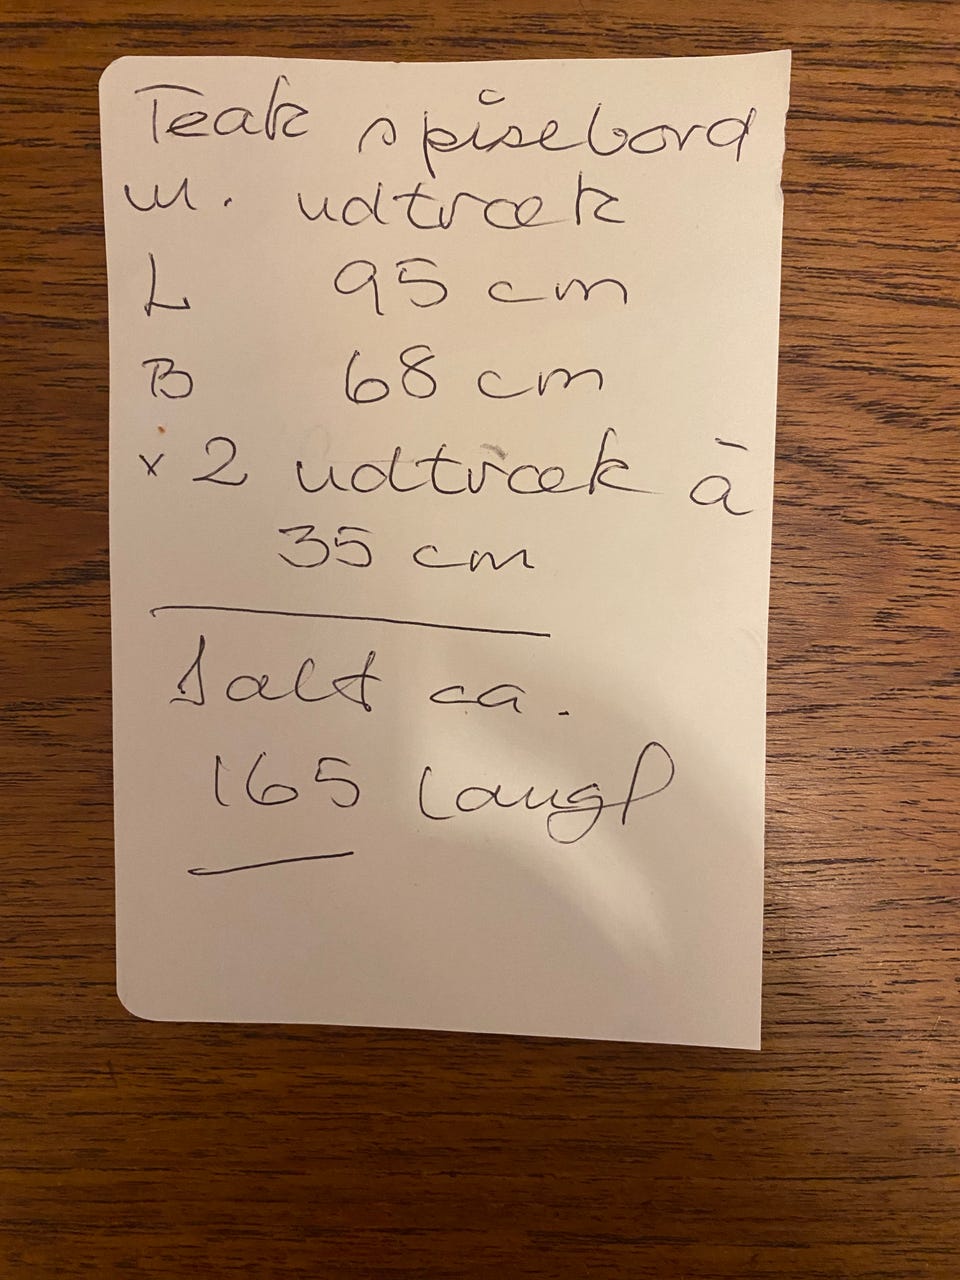 Teak spisebord
m. udtræk
L 95 cm
B 68 cm
x 2 udtræk à
35 cm
Ialt ca.
165 langt